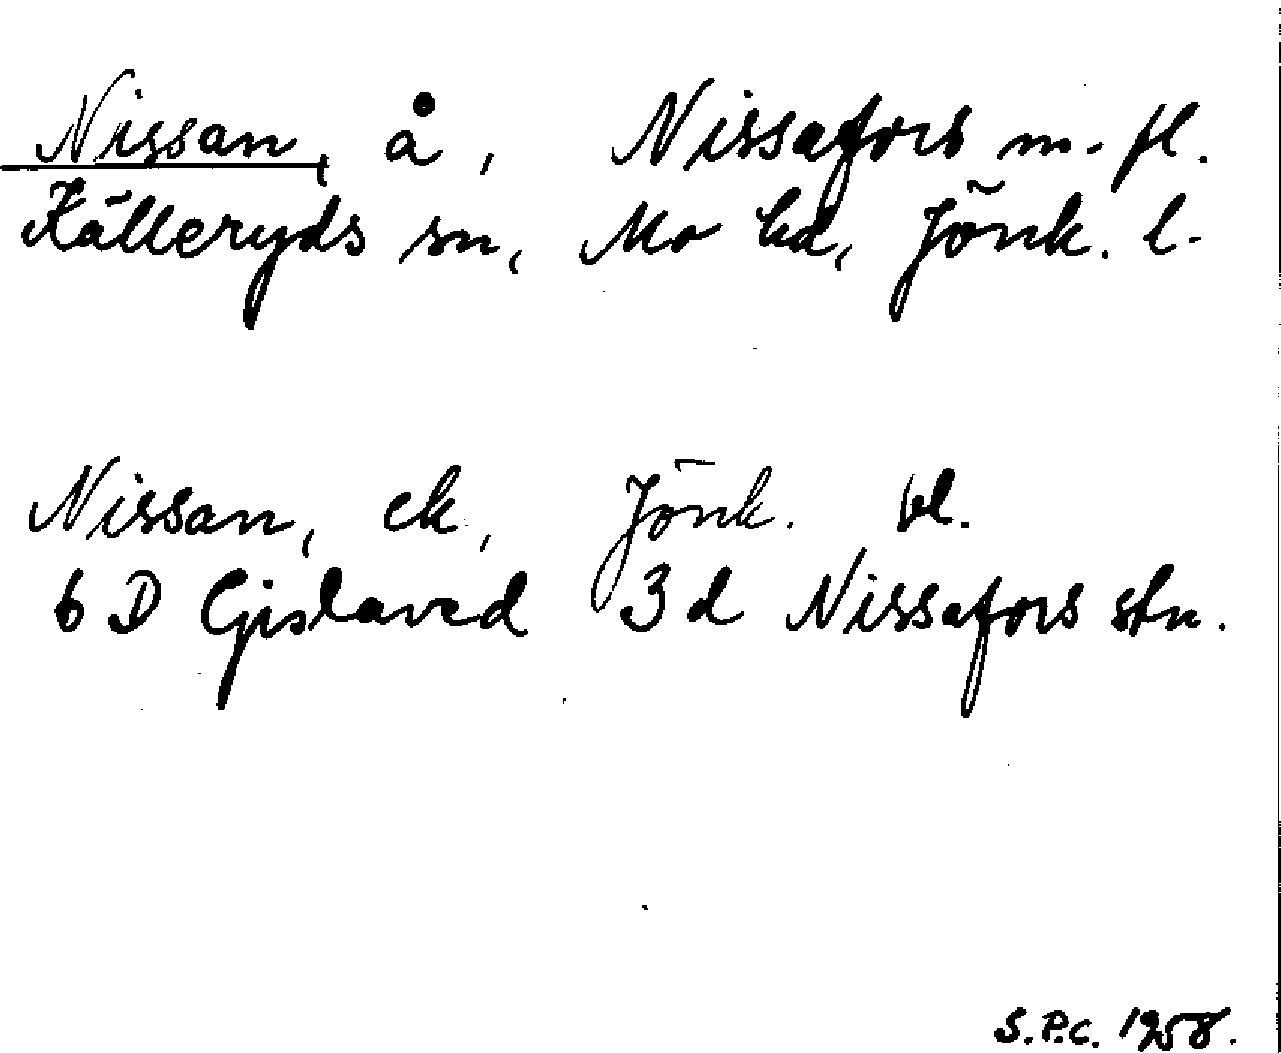 Nissan, å, Nissafors m. fl.
Källeryds sn, Mo hd, Jönk. l.
Nissan, ek, Jönk. bl.
6 D Gislaved 3 d Nissafors stn.
S.P.C. 1958.